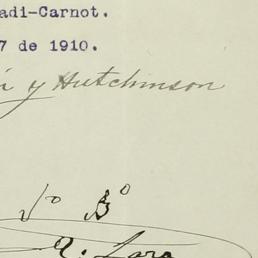 adi-Carnot.
7 de 1910.
y Hutchinson
Vº Bº
A. Lara